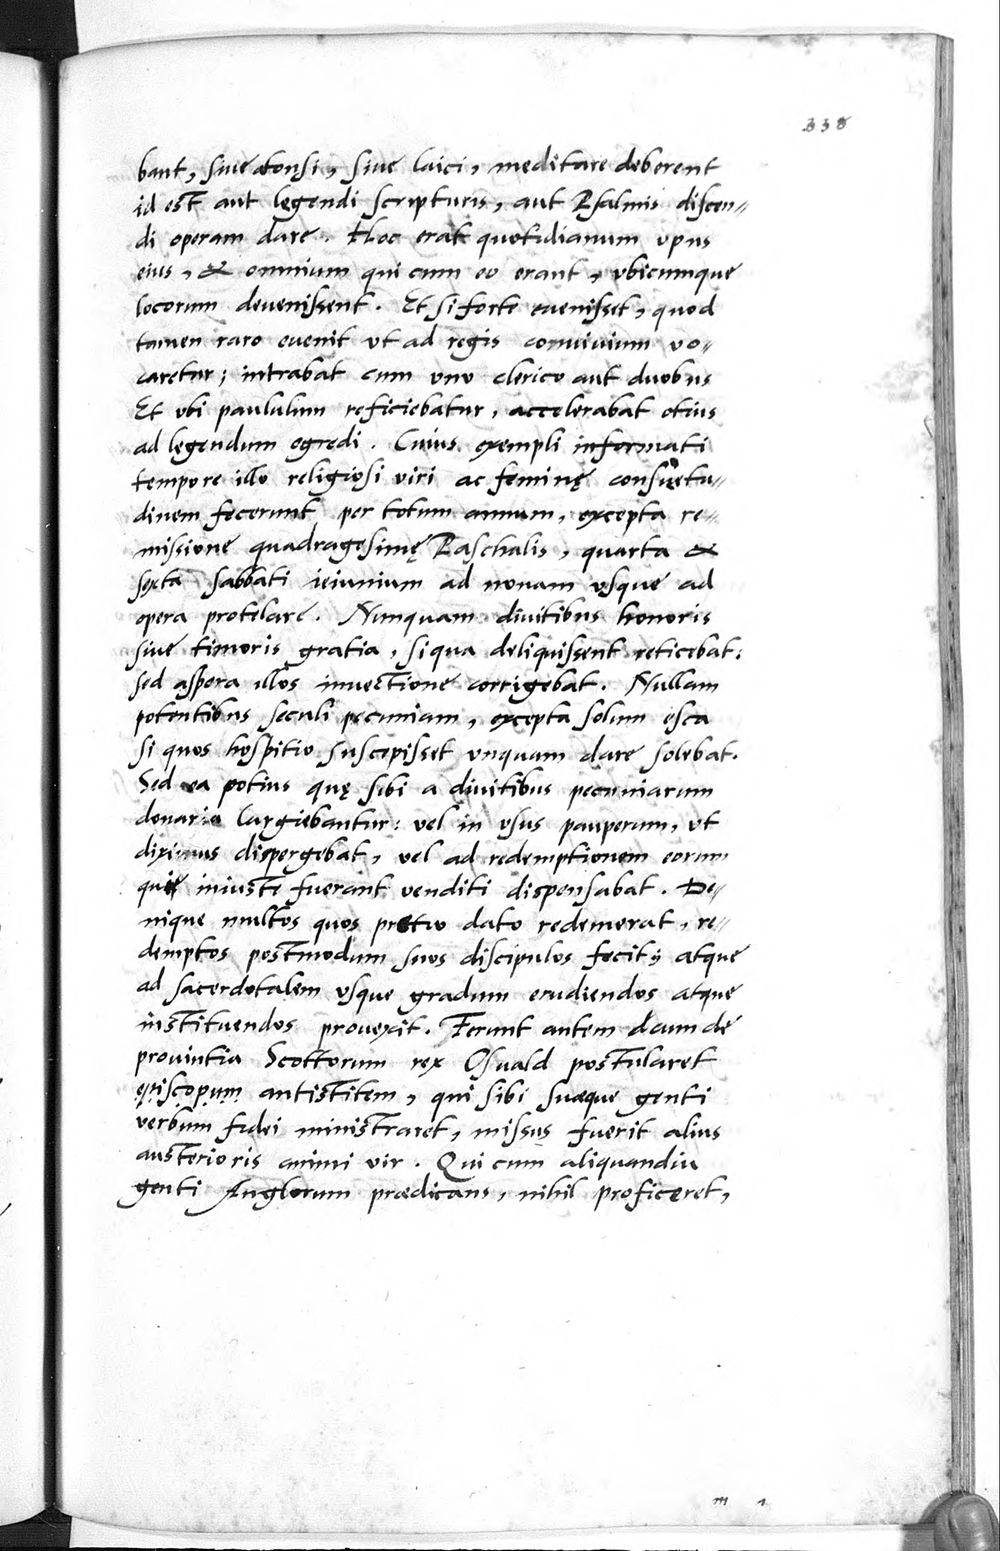 338
bant, siue atonsi, siue laici, meditare deberent
id est aut legendi scripturis, aut Psalmis discen-
di operam dare. Hoc erat quotidianum opus
eius, & omnium qui cum eo erant, vbicumque
locorum deuenissent. Et si forte euenisset, quod
tamen raro euenit vt ad regis conuiuium vo-
caretur; intrabat cum vno clerico aut duobus
Et vbi paululum reficiebatur, accelerabat otius
ad legendum egredi. Cuius exempli informati
tempore illo religiosi viri ac feminę consuetu-
dinem fecerunt per totum annum, excepta re-
missione quadragesimę Paschalis, quarta &
sexta sabbati ieiunium ad nonam vsque ad
opera protelare. Nunquam diuitibus honoris
siue timoris gratia, siqua deliquissent reticebat:
sed aspera illos inuectione corrigebat. Nullam
potentibus seculi pecuniam, excepta solum esca
si quos hospitio suscepisset vnquam dare solebat.
Sed ea potius quę sibi a diuitibus pecuniarum
donaria largiebantur: vel in vsus pauperum, vt
diximus dispergebat, vel ad redemptionem eorum
qui iniuste fuerant venditi dispensabat. De-
nique multos quos pretio dato redemerat, re-
demptos postmodum suos discipulos fecit; atque
ad sacerdotalem vsque gradum erudiendos atque
instituendos prouexit. Ferunt autem dcum de
prouintia Scottorum rex Osuald postularet
episcopum antistitem, qui sibi suæque genti
verbum fidei ministraret, missus fuerit alius
austerioris animi vir. Qui cum aliquandiu
genti Anglorum prædicans, nihil proficeret,
m 1